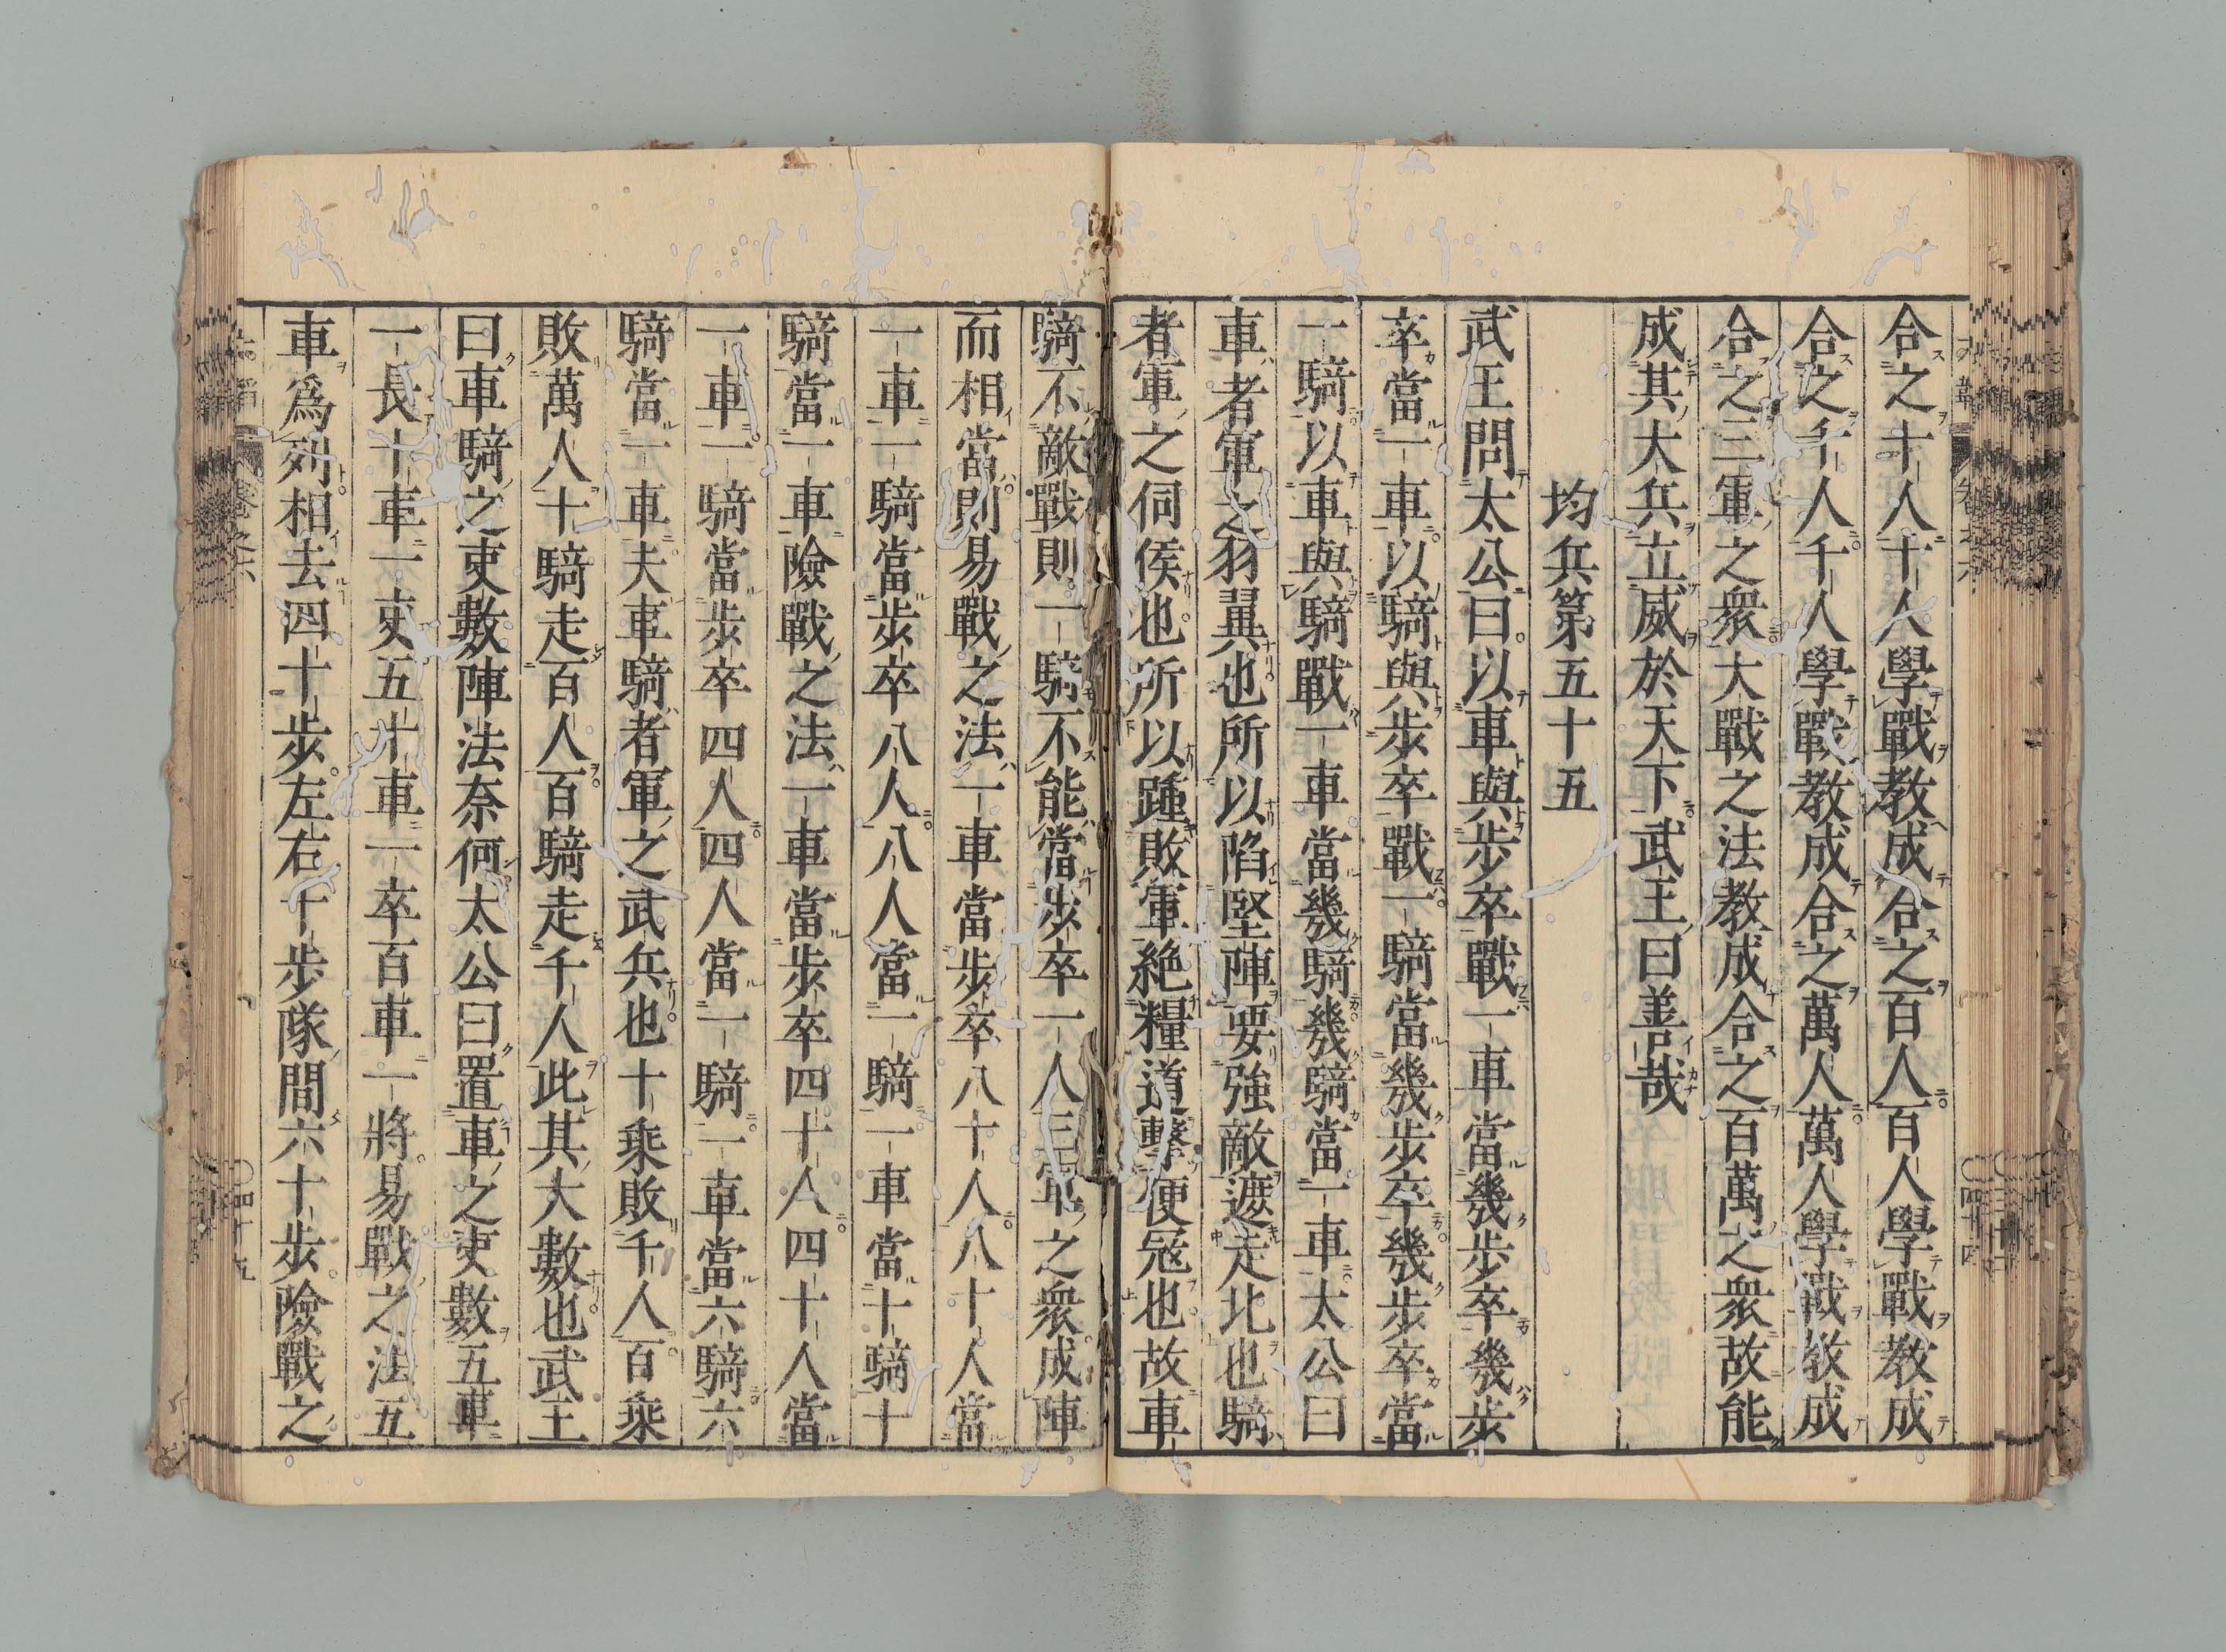 合之十人十人學戰教成合之百人百人學戰教成
合之千人千人學戰教成合之萬人萬人學戰教成
合之三軍之衆大戰之法教成合之百萬之衆故能
成其大兵立威於天下武王曰善哉
均兵第五十五
武王問太公曰以車與步卒戰一車當幾步卒幾步
卒當一車以騎與步卒戰一騎當幾步卒幾步卒當
一騎以車與騎戰一車當幾騎幾騎當一車太公曰
車者軍之羽翼也所以陷堅陣要強敵遮走北也騎
者軍之伺侯也所以踵敗軍絶糧道擊便寇也故車
騎不敵戰則一騎不能當步卒一人三軍之衆成陣
而相當則易戰之法一車當步卒八十人八十人當
一車一騎當步卒八人八人當一騎一車當十騎十
騎當一車險戰之法一車當步卒四十人四十人當
一車一騎當步卒四人四人當一騎一車當六騎六
騎當一車夫車騎者軍之武兵也十乘敗千人百乘
敗萬人十騎走百人百騎走千人此其大數也武王
曰車騎之吏數陣法奈何太公曰置車之吏數五車
一長十車一吏五十車一卒百車一將易戰之法五
車爲列相去四十步左右十步隊間六十步險戰之